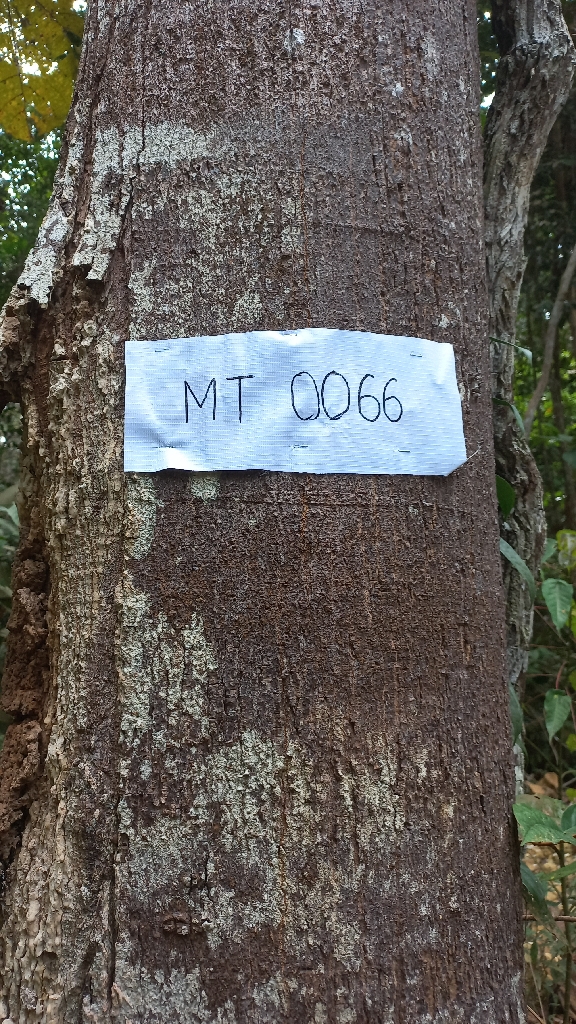 MT 0066